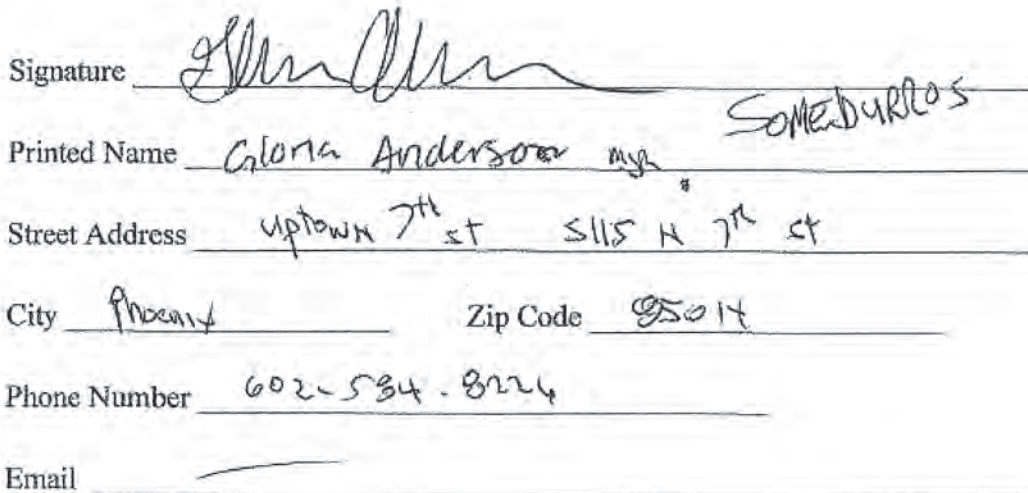 Signature
SOMEBURROS
Printed Name Gloria Anderson mgr
Street Address uptown 7th st 5115 N 7th st
City Phoenix Zip Code 85014
Phone Number 602-534-8224
Email